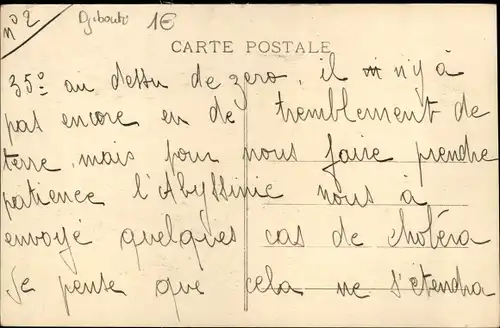 nº 2
Djibouti 1€
CARTE POSTALE
35º au dessu de zero, il n'y à
pas encore eu de tremblement de
terre, mais pour nous faire prendre
patience l'Abyssinie nous à
envoyé quelques cas de choléra
Je pense que cela ne s'étendra